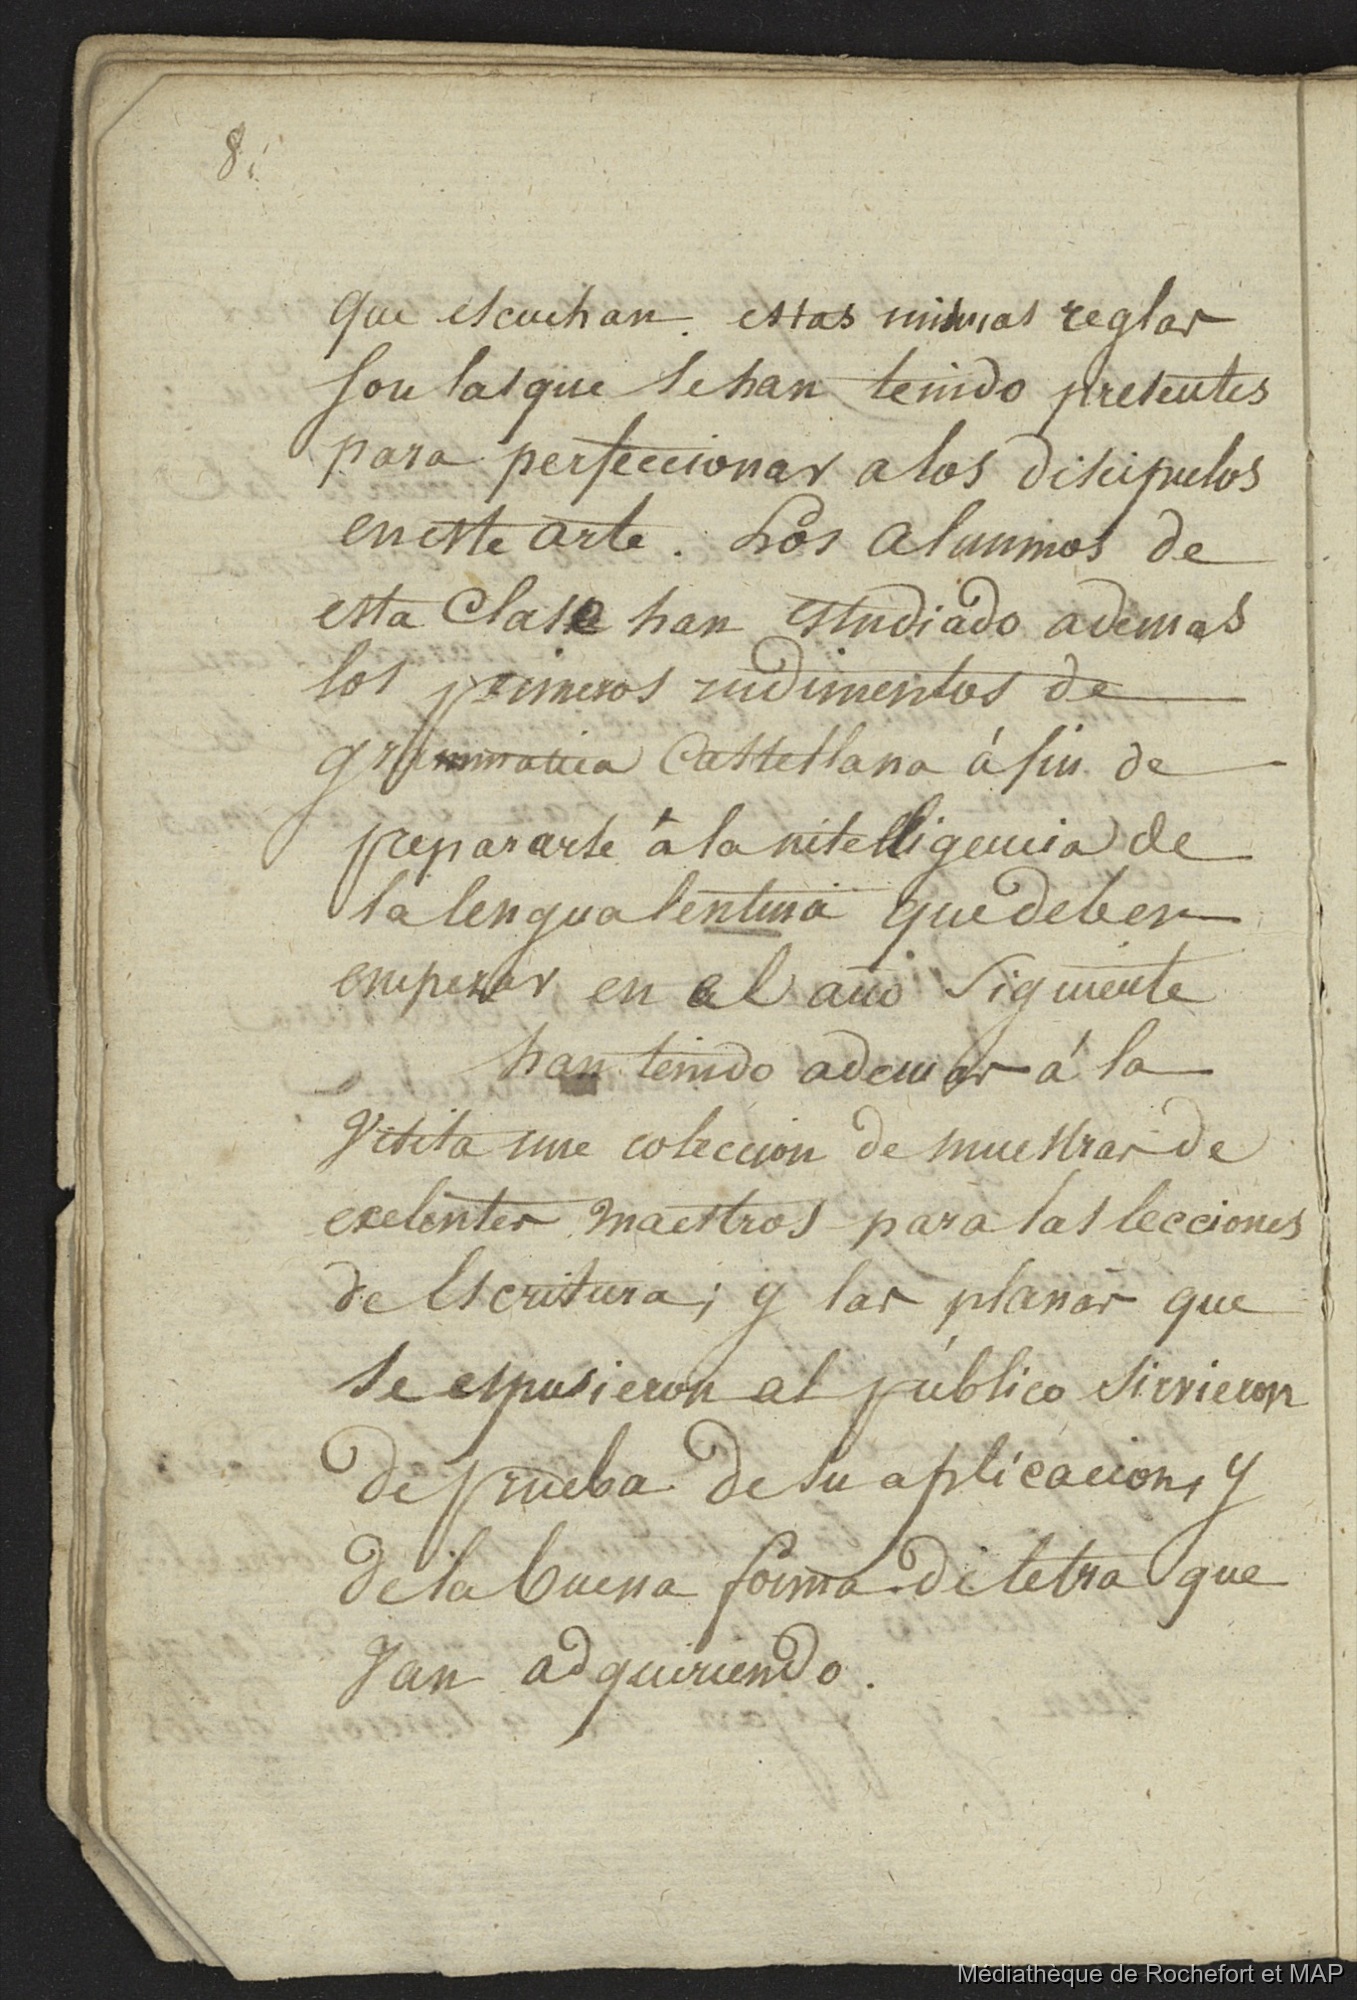 8.
que escuchan. estas mismas reglas
son las que se han tenido presentes
para perfeccionar a los discipulos
en este arte. Los alumnos de
esta Clase han estudiado ademas
los primeros rudimentos de
grammatica Castellana á fin de
prepararse á la intelligencia de
la lengua lentina que deben
empezar en el año siguiente
han tenido ademas á la
vista une coleccion de muestras de
exelentes maestros para las lecciones
de Escritura; y las planas que
se espusieron al público sirvieron
de prueba de su aplicacion, y
de la buena forma de letra que
van adquiriendo.
Médiathèque de Rochefort et MAP